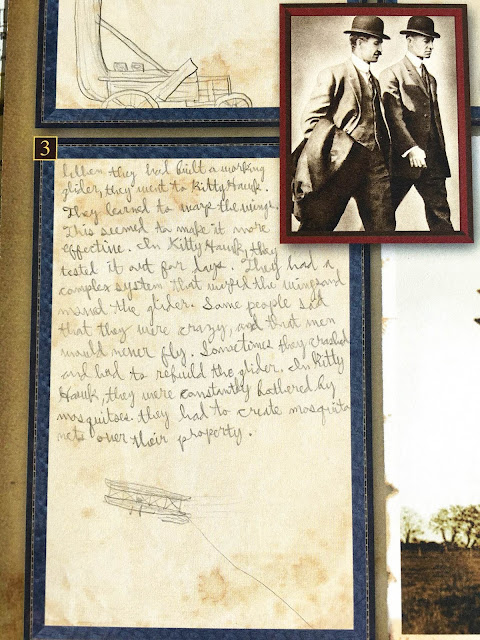 3
When they had built a working
glider, they went to Kitty Hawk.
They learned to warp the wings.
This seemed to make it more
effective. In Kitty Hawk, they
tested it out for days. They had a
complex system that warped the wings and
maned the glider. Some people said
that they were crazy, and that men
would never fly. Sometimes they crashed
and had to rebuild the glider. In Kitty
Hawk, they were constantly bothered by
mosquitoes. they had to create mosquito
nets over their property.